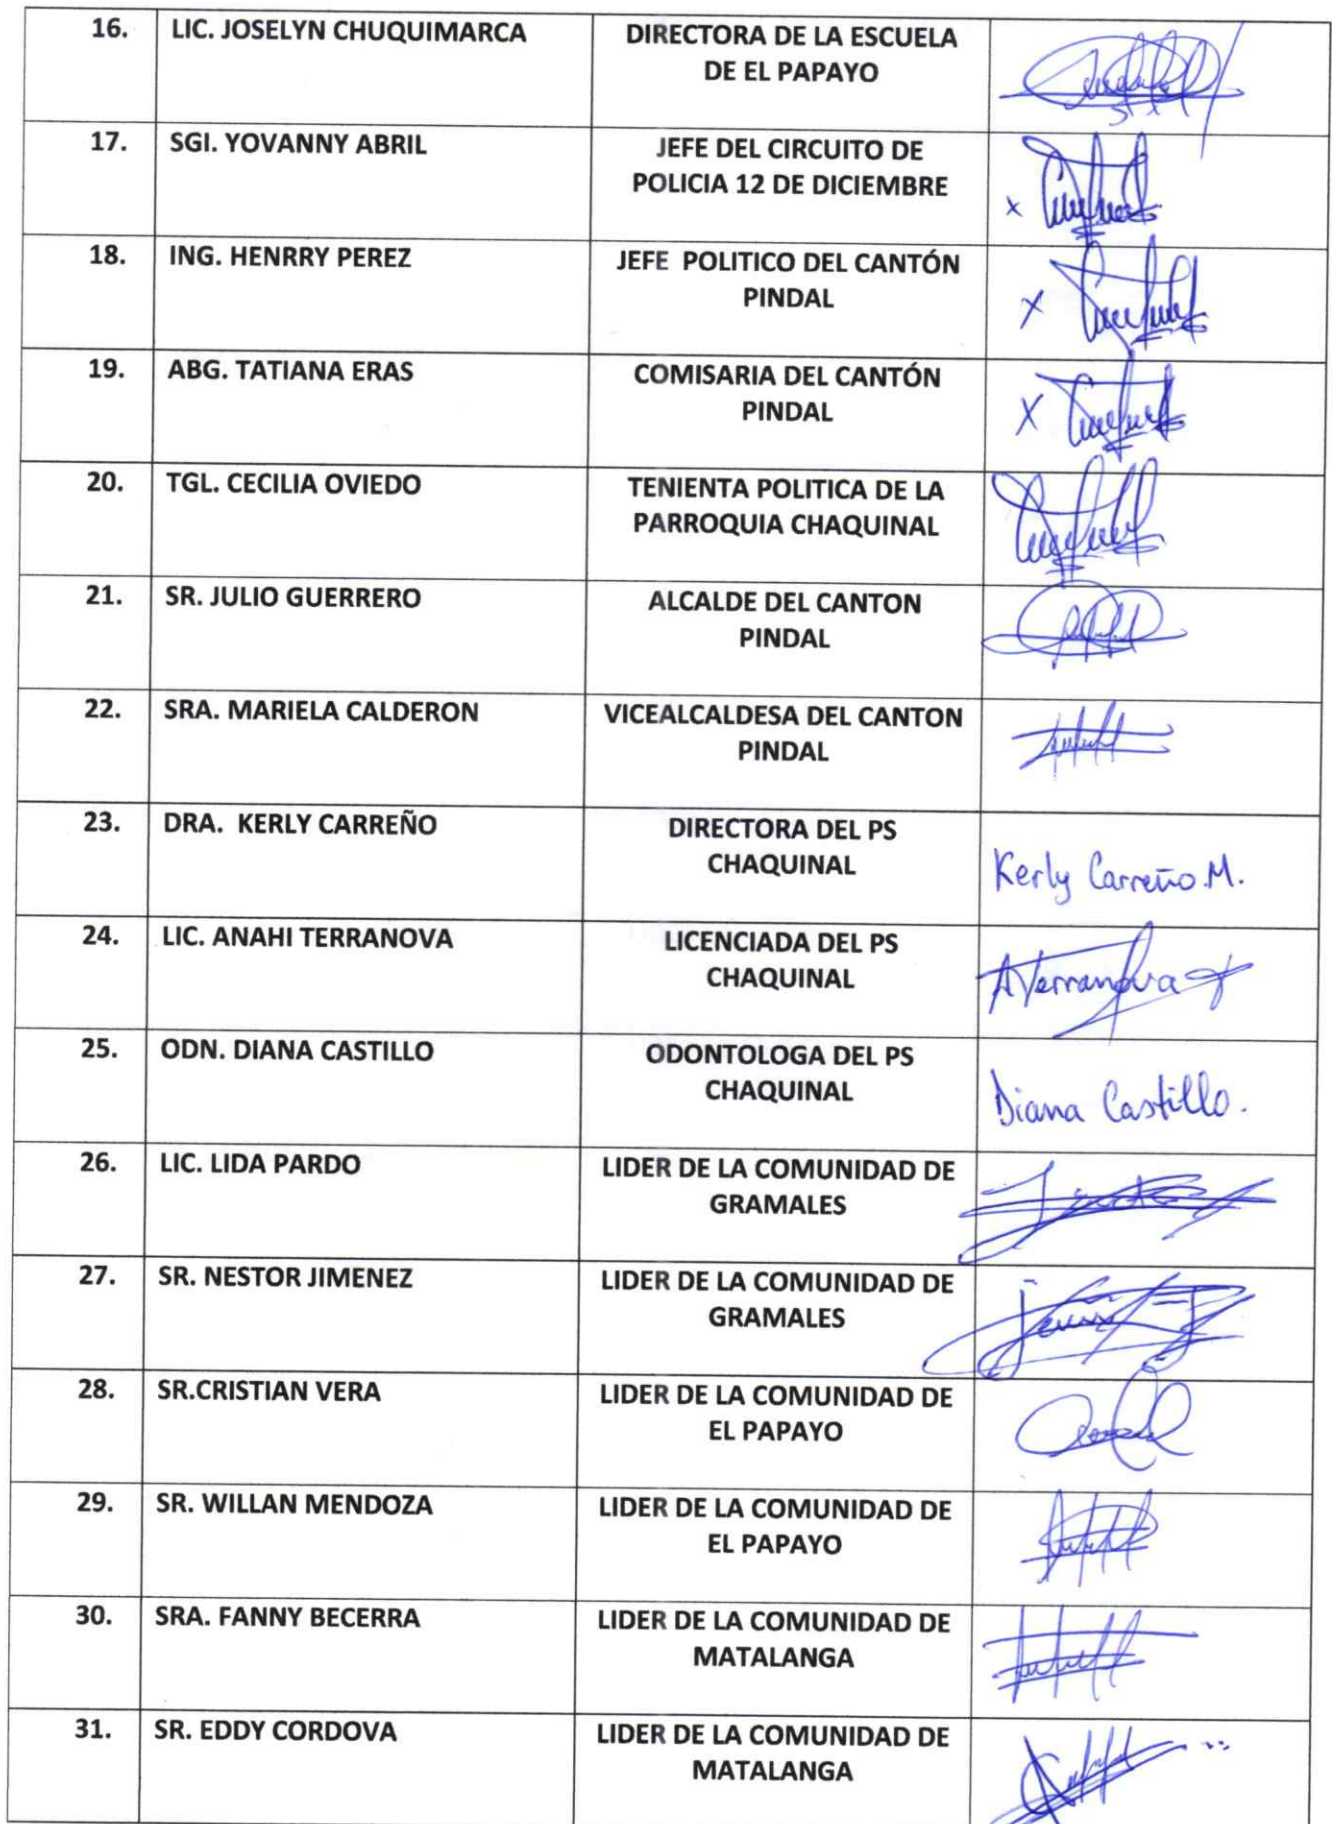 16. LIC. JOSELYN CHUQUIMARCA DIRECTORA DE LA ESCUELA
DE EL PAPAYO
17. SGI. YOVANNY ABRIL JEFE DEL CIRCUITO DE
POLICIA 12 DE DICIEMBRE
x
18. ING. HENRRY PEREZ JEFE POLITICO DEL CANTÓN
PINDAL
x
19. ABG. TATIANA ERAS COMISARIA DEL CANTÓN
PINDAL
x
20. TGL. CECILIA OVIEDO TENIENTA POLITICA DE LA
PARROQUIA CHAQUINAL
21. SR. JULIO GUERRERO ALCALDE DEL CANTON
PINDAL
22. SRA. MARIELA CALDERON VICEALCALDESA DEL CANTON
PINDAL
23. DRA. KERLY CARREÑO DIRECTORA DEL PS
CHAQUINAL
Kerly Carreño.M.
24. LIC. ANAHI TERRANOVA LICENCIADA DEL PS
CHAQUINAL
ATerranova
25. ODN. DIANA CASTILLO ODONTOLOGA DEL PS
CHAQUINAL
Diana Castillo.
26. LIC. LIDA PARDO LIDER DE LA COMUNIDAD DE
GRAMALES
27. SR. NESTOR JIMENEZ LIDER DE LA COMUNIDAD DE
GRAMALES
28. SR.CRISTIAN VERA LIDER DE LA COMUNIDAD DE
EL PAPAYO
29. SR. WILLAN MENDOZA LIDER DE LA COMUNIDAD DE
EL PAPAYO
30. SRA. FANNY BECERRA LIDER DE LA COMUNIDAD DE
MATALANGA
31. SR. EDDY CORDOVA LIDER DE LA COMUNIDAD DE
MATALANGA